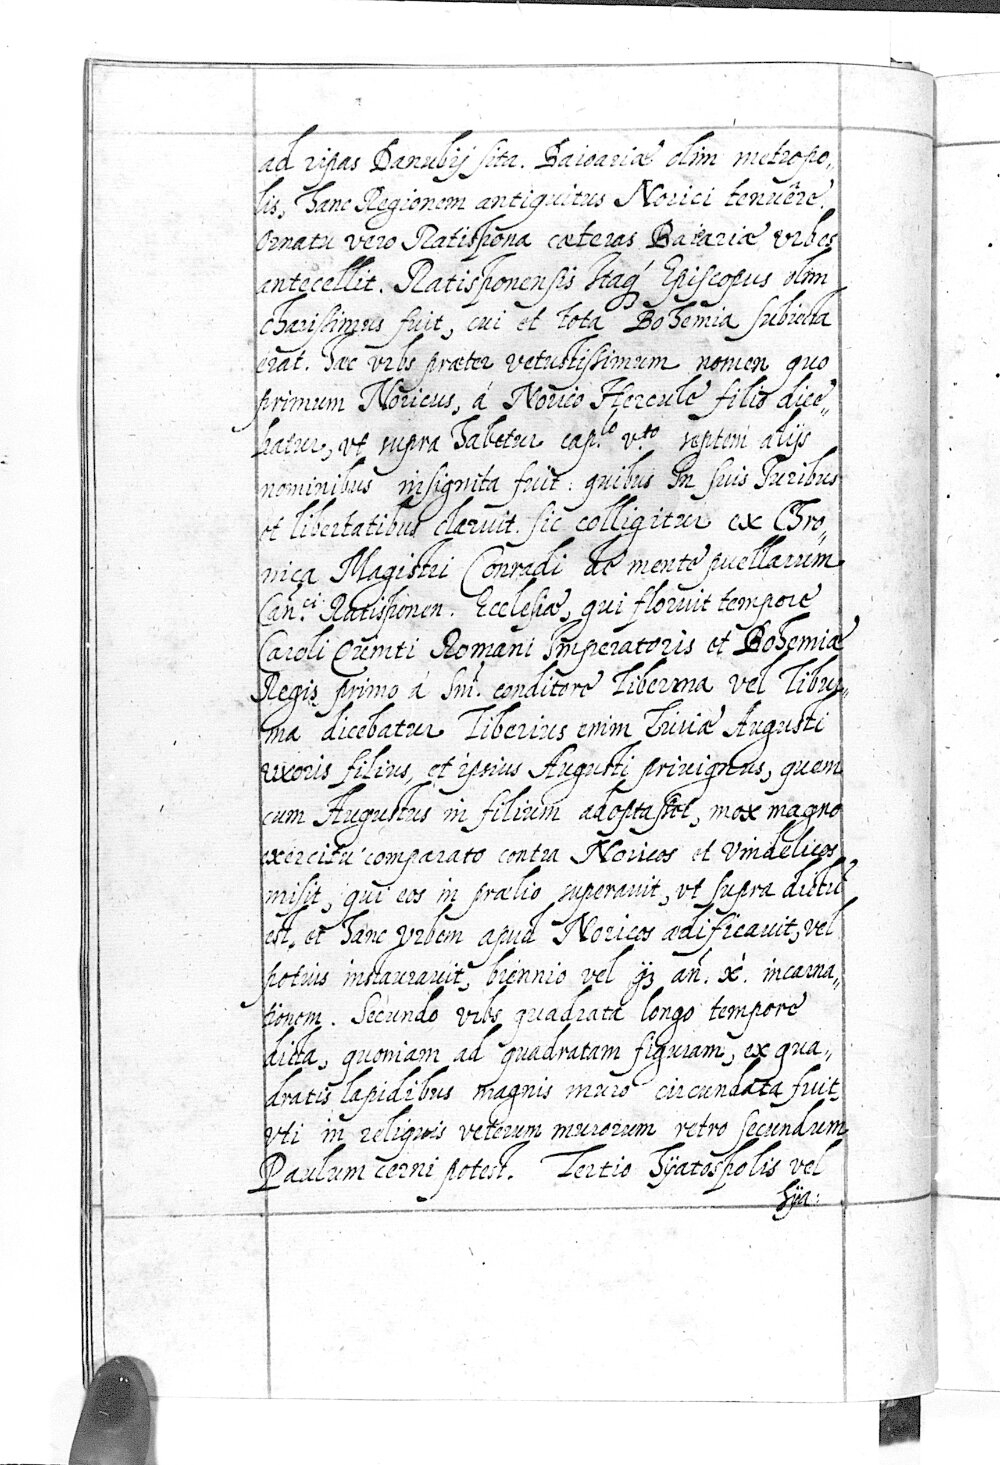 ad ripas Danubij sita. Baioariæ olim metropo„
lis, hanc Regionem antiquitus Norici tenuêre.
Ornatu vero Ratispona cæteras Baiariæ vrbes
antecellit. Ratisponensis Itaq́ Episcopus olim
charissimus fuit, cui et tota Bohemia subiecta
erat. hæc vrbs præter vetustissimum nomen quo
primum Noricus, á Norico Hercule filio dice„
batur, vt supra habetur cap.lo v.to septem alijs
nominibus insignita fuit: quibus In suis Iuribus
et libertatibus claruit. sic colligitur ex Chro„
nica Magistri Conradi de monte puellarum
Can.ci Ratisponen. Ecclesiæ, qui floruit tempore
Caroli Quinti Romani Imperatoris et Bohemiæ
Regis primo á conditore Tiberina vel Tibur„
ma dicebatur Tiberius enim Liuiæ Augusti
vxoris filius, et ipsius Augusti priuignus, quem
cum Augustus in filium adoptasset, mox magno
exercitu comparato contra Noricos et Vindelicos
misit, qui eos in prælio superauit, vt supra dictũ
est, et hanc Vrbem apud Noricos ædificauit, vel
potius instaurauit, biennio vel an̄. x̄. incarna„
tionem. Secundo vrbs quadrata longo tempore
dicta, quoniam ad quadratam figuram, ex qua„
dratis lapidibus magnis muro circundata fuit,
vti in reliquis veterum murorum retro secundum
Paulum cerni potest. Tertio hÿatospolis vel
hÿa: